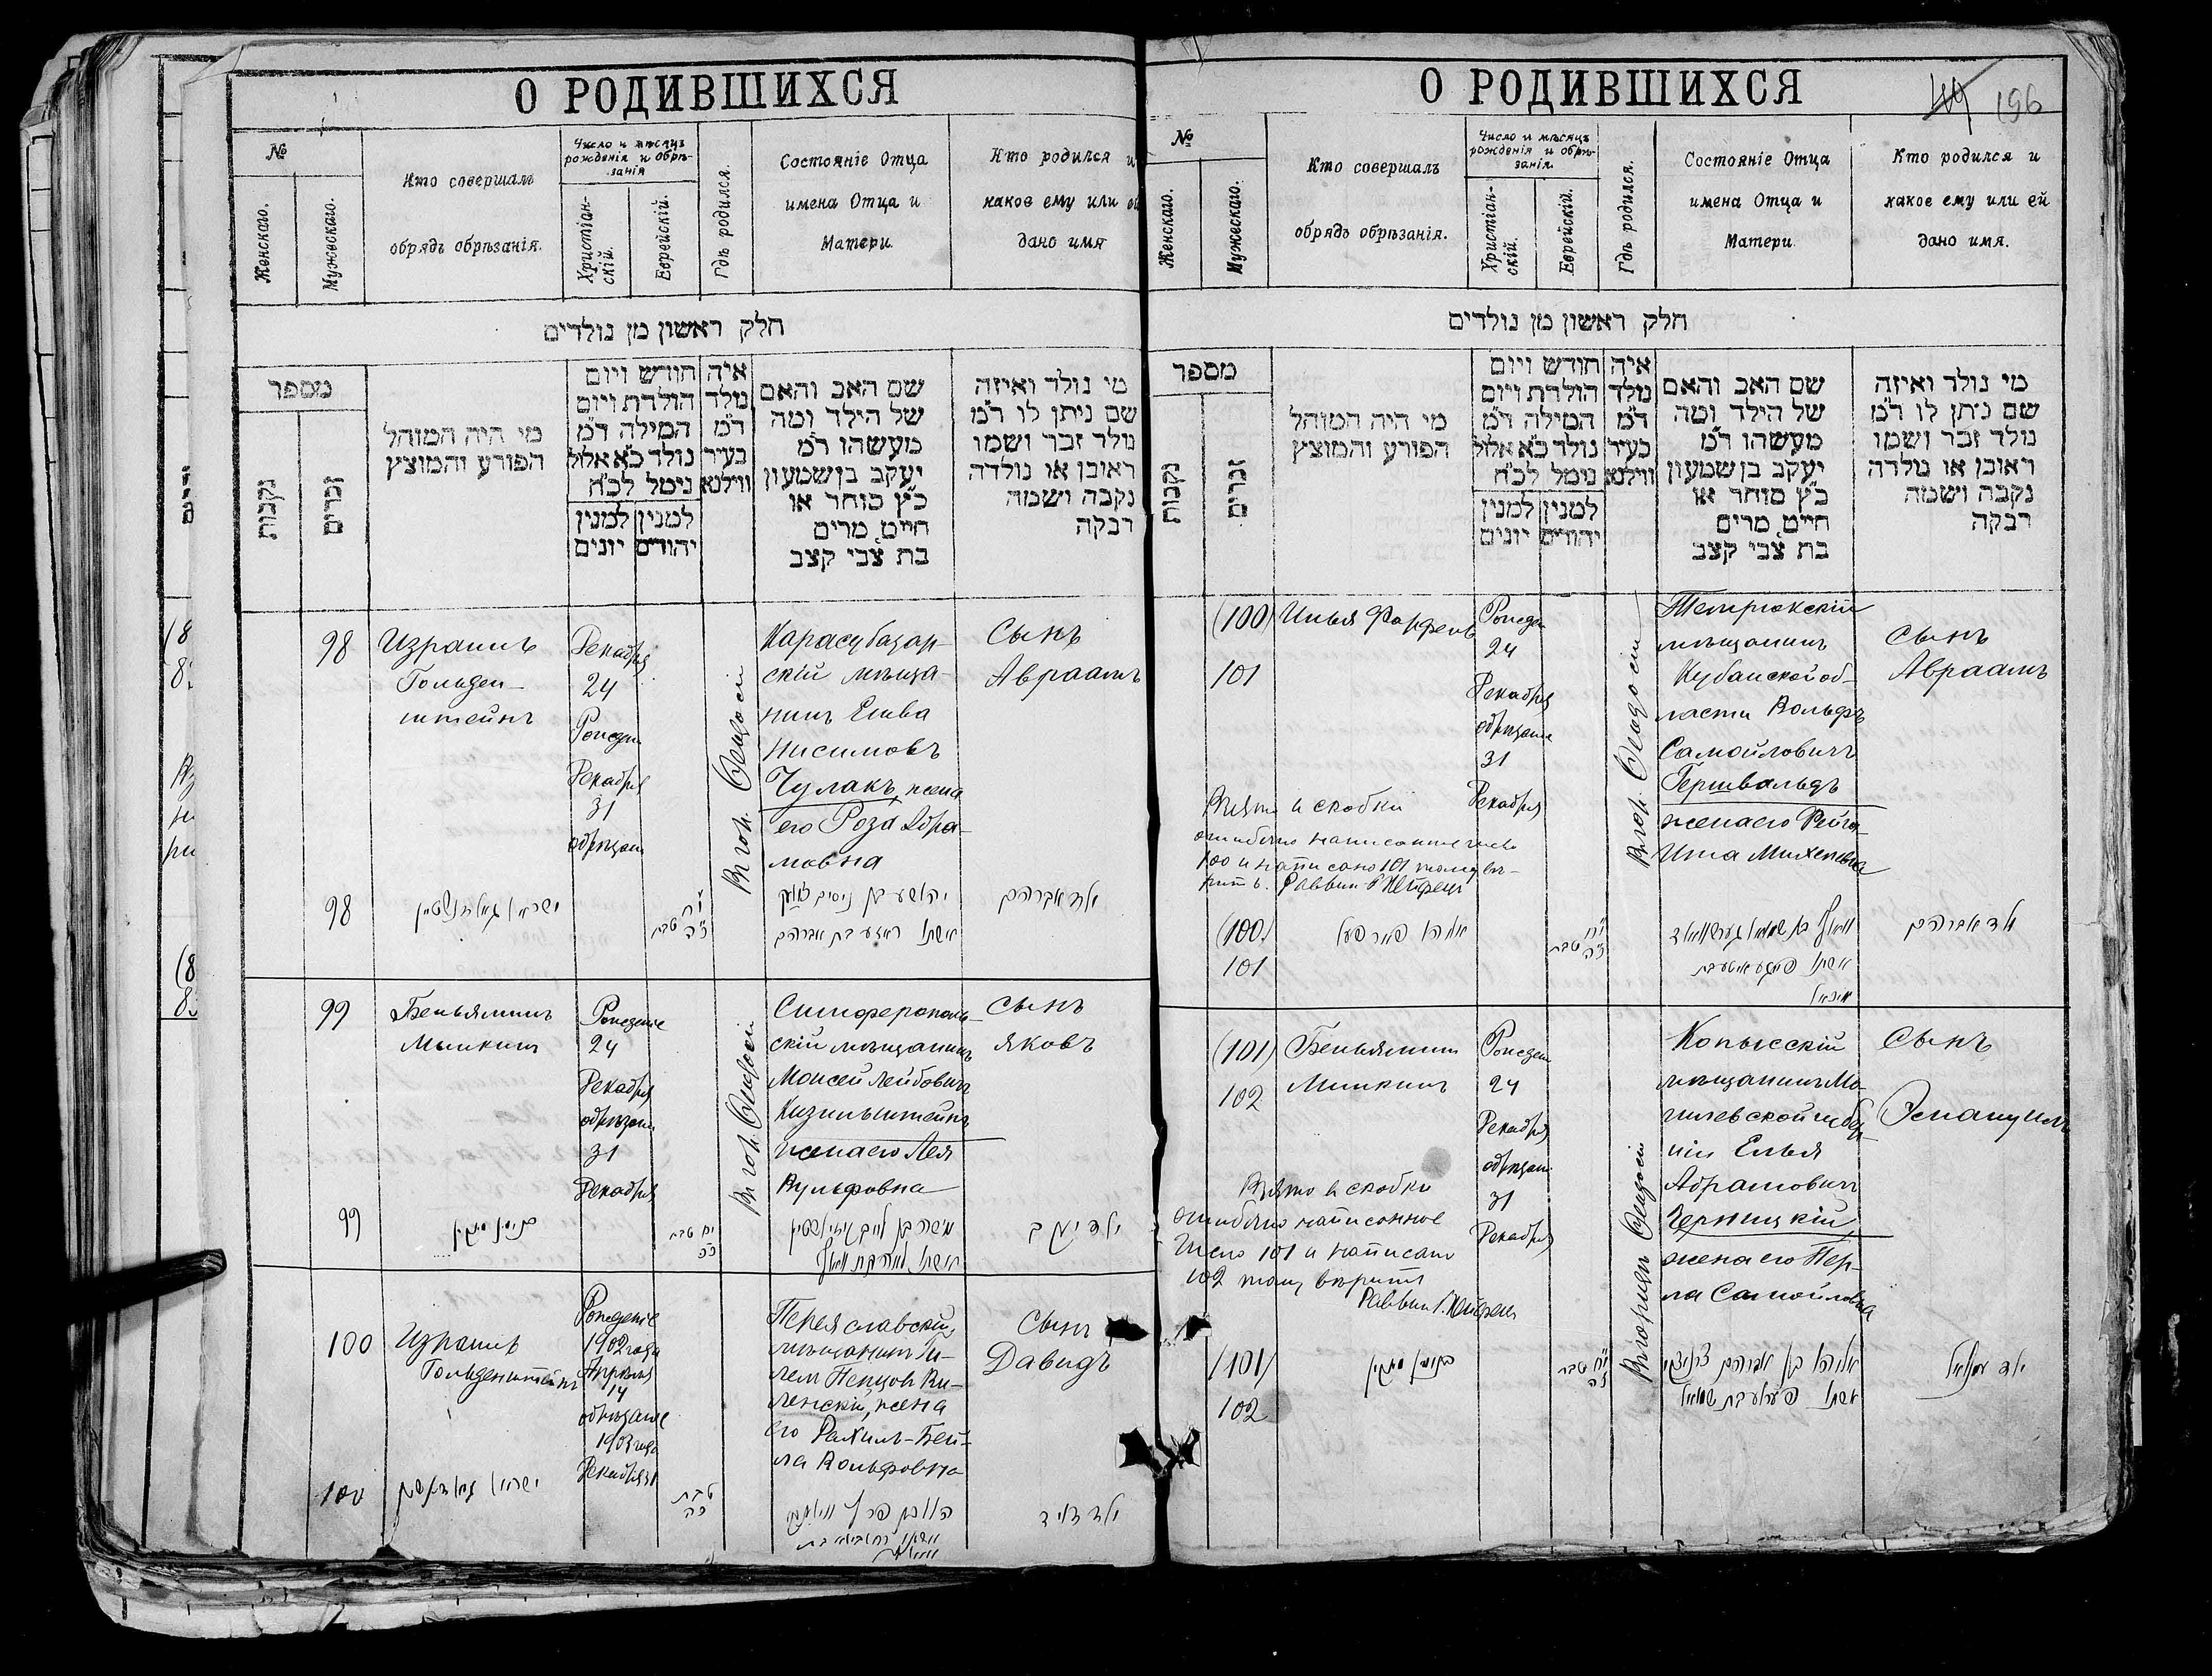 О РОДИВШИХСЯ
№
Женскаго.
Мужескаго.
Кто совершалъ
обрядъ обрѣзанія.
Число и мѣсяцъ
рожденія и обрѣ-
занія
Христіан-
скій.
Еврейскій.
Гдѣ родился.
Состояніе Отца
имена Отца и
Матери.
Кто родился и
какое ему или ей
дано имя
חלק ראשון מן נולדים
מספר
נקבות
זכרים
מי היה המוהל
הפורע והמוצץ
חודש ויום
הולדת ויום
המילה ד״מ
נולד כ״א אלול
נימל לכ״ח
למנין יהודים
למנין יונים
איה
נולד
ד״מ
בעיר
ווילנא
שם האב והאם
של הילד ומה
מעשהו ד״מ
יעקב בן שמעון
כ״ץ סוחר או
חייט מרים
בת צבי קצב
מי נולד ואיזה
שם ניתן לו ד״מ
נולד זכר ושמו
ראובן או נולדה
נקבה ושמה
רבקה
98
Израиль
Гольден-
штейнъ
Декабря
24
Рожден
Декабря
31
обрѣзан
Въ гор. Ѳеодосіи
Карасубазар-
скій мѣща-
нинъ Ешва
Нисимовъ
Чулакъ, жена
его Роза Абра-
мовна
Сынъ
Авраамъ
98
ישראל גאלדנשטיין
י״ח
טבת
יהושע בן ניסים
אשתו ראזע בת אברהם
ילד אברהם
99
Беньяминъ
Минкинъ
Рожденіе
24
Декабря
обрѣзан
31
Декабря
Въ гор. Ѳеодосіи
Симферополь-
скій мѣщанинъ
Моисей Лейбовичъ
Кизильштейнъ
жена его Лея
Вульфовна
сынъ
Яковъ
99
בנימין מינקין
י״ח טבת
כ״ה
משה בן לייב קיזילשטיין
אשתו לאה בת וואלף
ילד יעקב
100
Израиль
Гольденштейнъ
Рожденіе
1902 года
Апрѣля
14
обрѣзаніе
1903 года
Декабря 31
Переяславскій
мѣщанинъ Ги-
лель Пенцов Ви-
ленскій, жена
его Рахиль-Бей-
ла Вольфовна
Сынъ
Давидъ
100
ישראל גאלדנשטיין
טבת
כה
ילד דוד
О РОДИВШИХСЯ
196
№
Женскаго.
Мужескаго.
Кто совершалъ
обрядъ обрѣзанія.
Число и мѣсяцъ
рожденія и обрѣ-
занія.
Христіан-
скій.
Еврейскій.
Гдѣ родился.
Состояніе Отца
имена Отца и
Матери
Кто родился и
какое ему или ей
дано имя.
חלק ראשון מן נולדים
מספר
נקבות
זכרים
מי היה המוהל
הפורע והמוצץ
חודש ויום
הולדת ויום
המילה ד״מ
נולד כ״א אלול
נימל לכ״ח
למנין יהודים
למנין יונים
איה
נולד
ד״מ
בעיר
ווילנא
שם האב והאם
של הילד ומה
מעשהו ד״מ
יעקב בן שמעון
כ״ץ סוחר או
חייט מרים
בת צבי קצב
מי נולד ואיזה
שם ניתן לו ד״מ
נולד זכר ושמו
ראובן או נולדה
נקבה ושמה
רבקה
(100)
101
Илья
Рожден
24
Декабря
обрѣзаніе
31
Декабря
Въ гор. Ѳеодосіи
Темрюкскій
мѣщанинъ
Кубанской об-
ласти Вольфъ
Самойловичъ
Гершвальдъ
жена его Рейза-
Ита Михелевна
Сынъ
Авраамъ
Взято въ скобки
ошибочно написанное число
100 и написано 101 тому вѣ-
рить. Раввинъ
(100)
101
י״ח טבת
וואלף בן שמואל גערשוואלד
אשתו
מיכאל
ילד אברהם
(101)
102
Беньяминъ
Минкинъ
Рожден
24
Декабря
обрѣзан
31
Декабря
Въ городѣ Ѳеодосіи
Копысскій
мѣщанинъ Мо-
гилевской губер-
ніи Елья
Абрамовичъ
Черницкій
жена его Пер-
ла Самойловна
Сынъ
Эмануилъ
Взято въ скобки
ошибочно написанное
число 101 и написано
102 тому вѣрить
Раввинъ
(101)
102
בנימין מינקין
י״ח טבת
אליהו בן אברהם
אשתו פערלע בת שמואל
ילד עמנואל